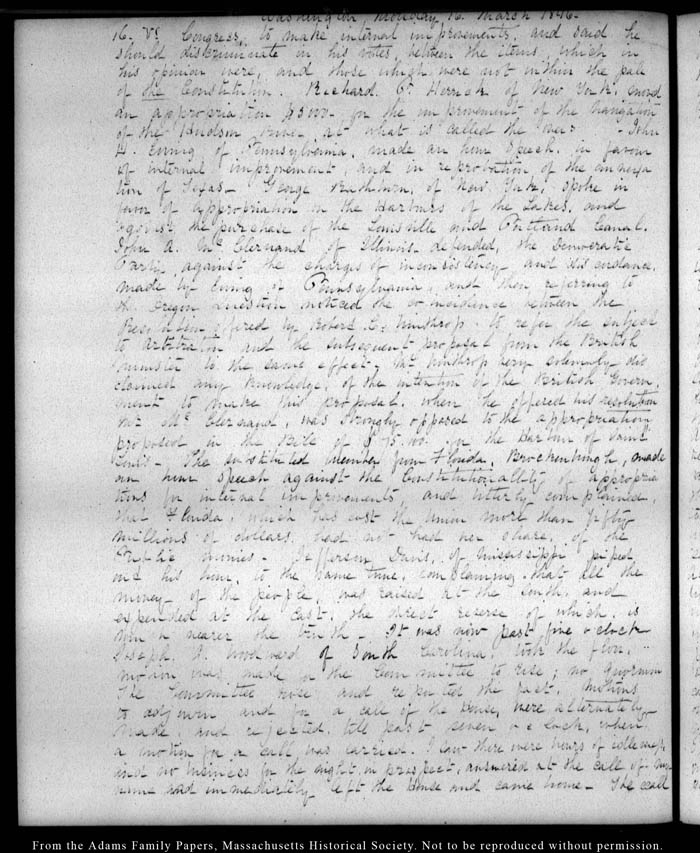 Washington, Monday 16. March 1846.
16. V. Congress, to make internal improvements, and said he
should discriminate in his votes between the items which in
his opinion were, and those which were not within the pale
of the Constitution. Richard P. Herrick of New York, moved
an appropriation $5000. for the improvement of the navigation
of the Hudson river at what is called the - John
H. Ewing of Pennsylvania, made an hour speech, in favour
of internal improvement, and in reprobation of the annexa
tion of Texas - George Rathbun, of New York, spoke in
favor of appropriation for the Harbours of the Lakes, and
against the purchase of the Louisville and Portland Canal.
John A. McClernand of Illinois defended, the Democratic
Party against the charges of inconsistency and
made by Ewing of Pennsylvania, and then referring to
the Oregon question noticed the coincidence between the
Resolution offered by Robert C. Winthrop to refer the subject
to arbitration and the subsequent proposal from the British
minister to the same effect, Mr Winthrop very solemnly dis
claimed any knowledge, of the intention of the British Govern
ment to make this proposal, when he offered his resolution
Mr McClernand, was strongly opposed to the appropriation
proposed in the Bill of $75.000. for the Harbour of Saint
Louis - The substituted member from Florida, Brockenbrough, made
an hour speech against the Constitutionality of appropria
tions for internal improvements and bitterly complained,
that Florida, which has cost the Union more than fifty
millions of dollars had not had her share, of the
Public monies - Jefferson Davis, of Mississippi piped
out his hour, to the same tune, complaining that all the
money of the people, was raised at the South, and
expended at the East, the direct reverse of which, is
much nearer the truth - It was now past five o'clock
Joseph A. Woodward of South Carolina, took the floor,
motion was made for the Committee to rise; no quorum
The Committee rose and reported the fact. Motions
to adjourn and for a call of the House, were alternately
made, and rejected till past seven o'clock, when
a motion for a call was carried. I saw there were hours of
and no business for the night in prospect, answered at the call of my
name and immediately left the House and came home - The call
From the Adams Family Papers, Massachusetts Historical Society. Not to be reproduced without permission.